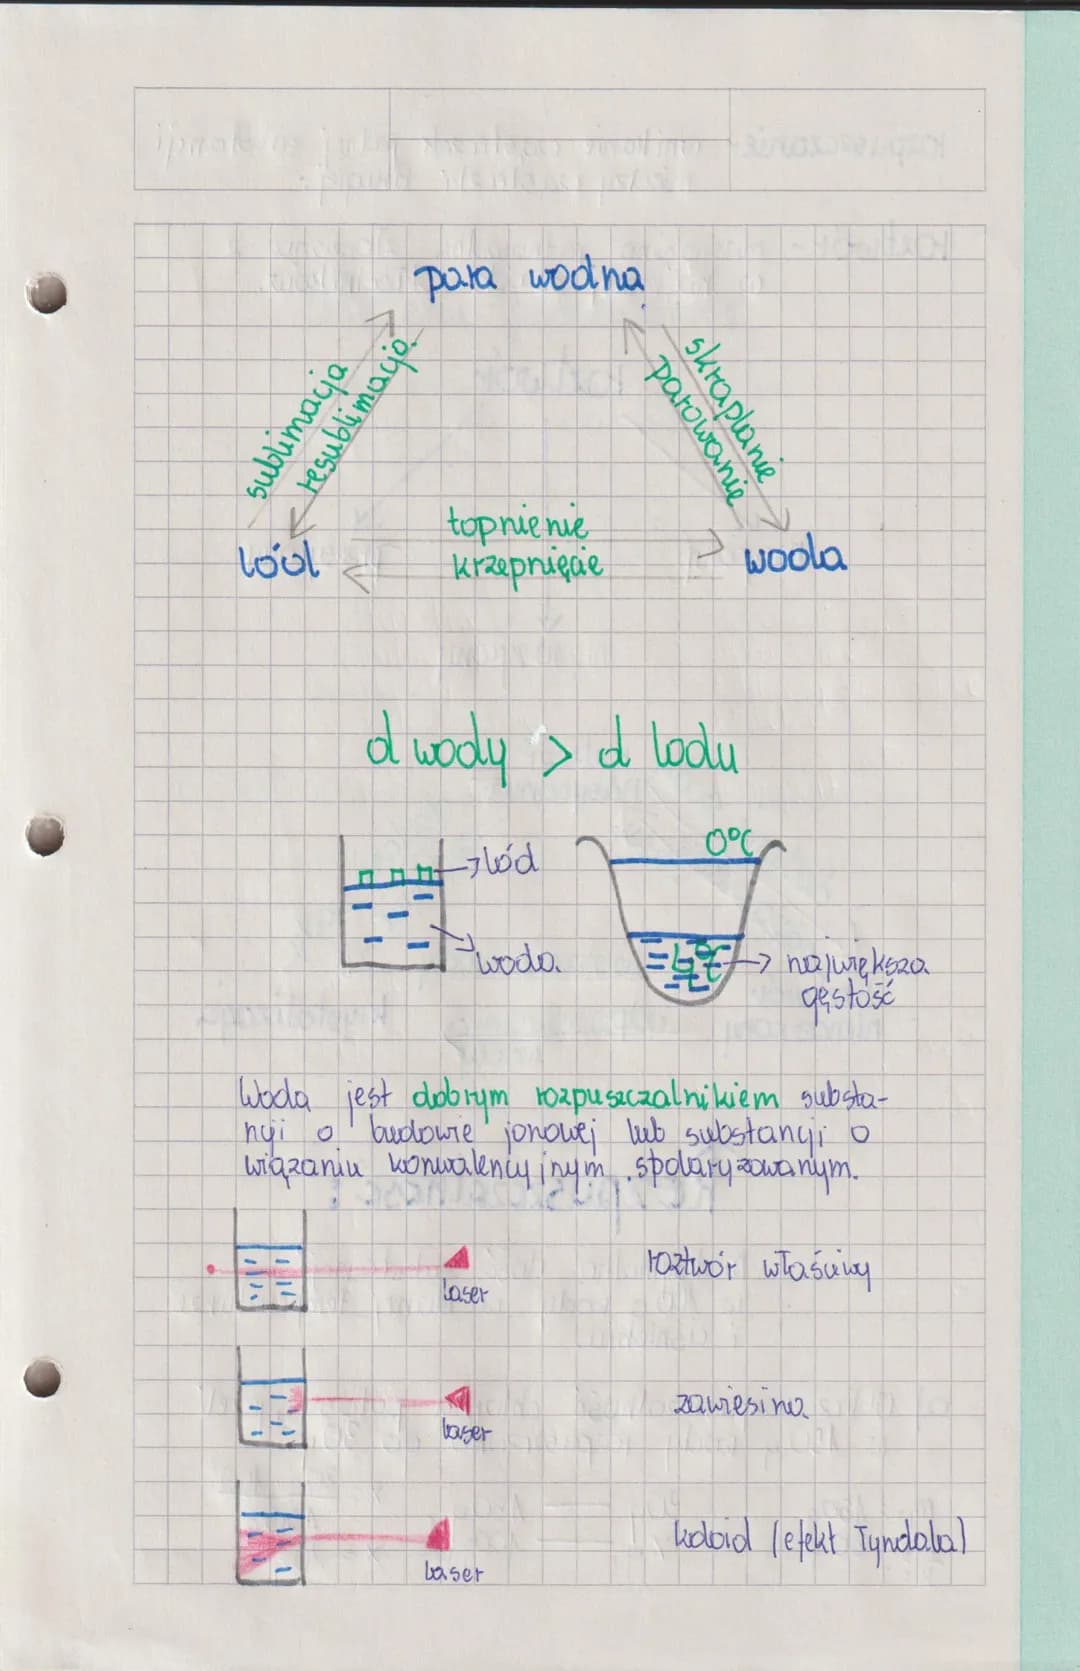 para wodna
sublimacja
resublimacja
skraplanie
parowanie
topnienie
krzepnięcie
lód
woda
d wody > d lodu
0°C
lód
woda
4°C
największa
gęstość
Woda jest dobrym rozpuszczalnikiem substa-
ncji o budowie jonowej lub substancji o
wiązaniu konwalencyjnym spolaryzowanym.
laser
roztwór właściwy
laser
zawiesina
laser
koloid (efekt Tyndala)